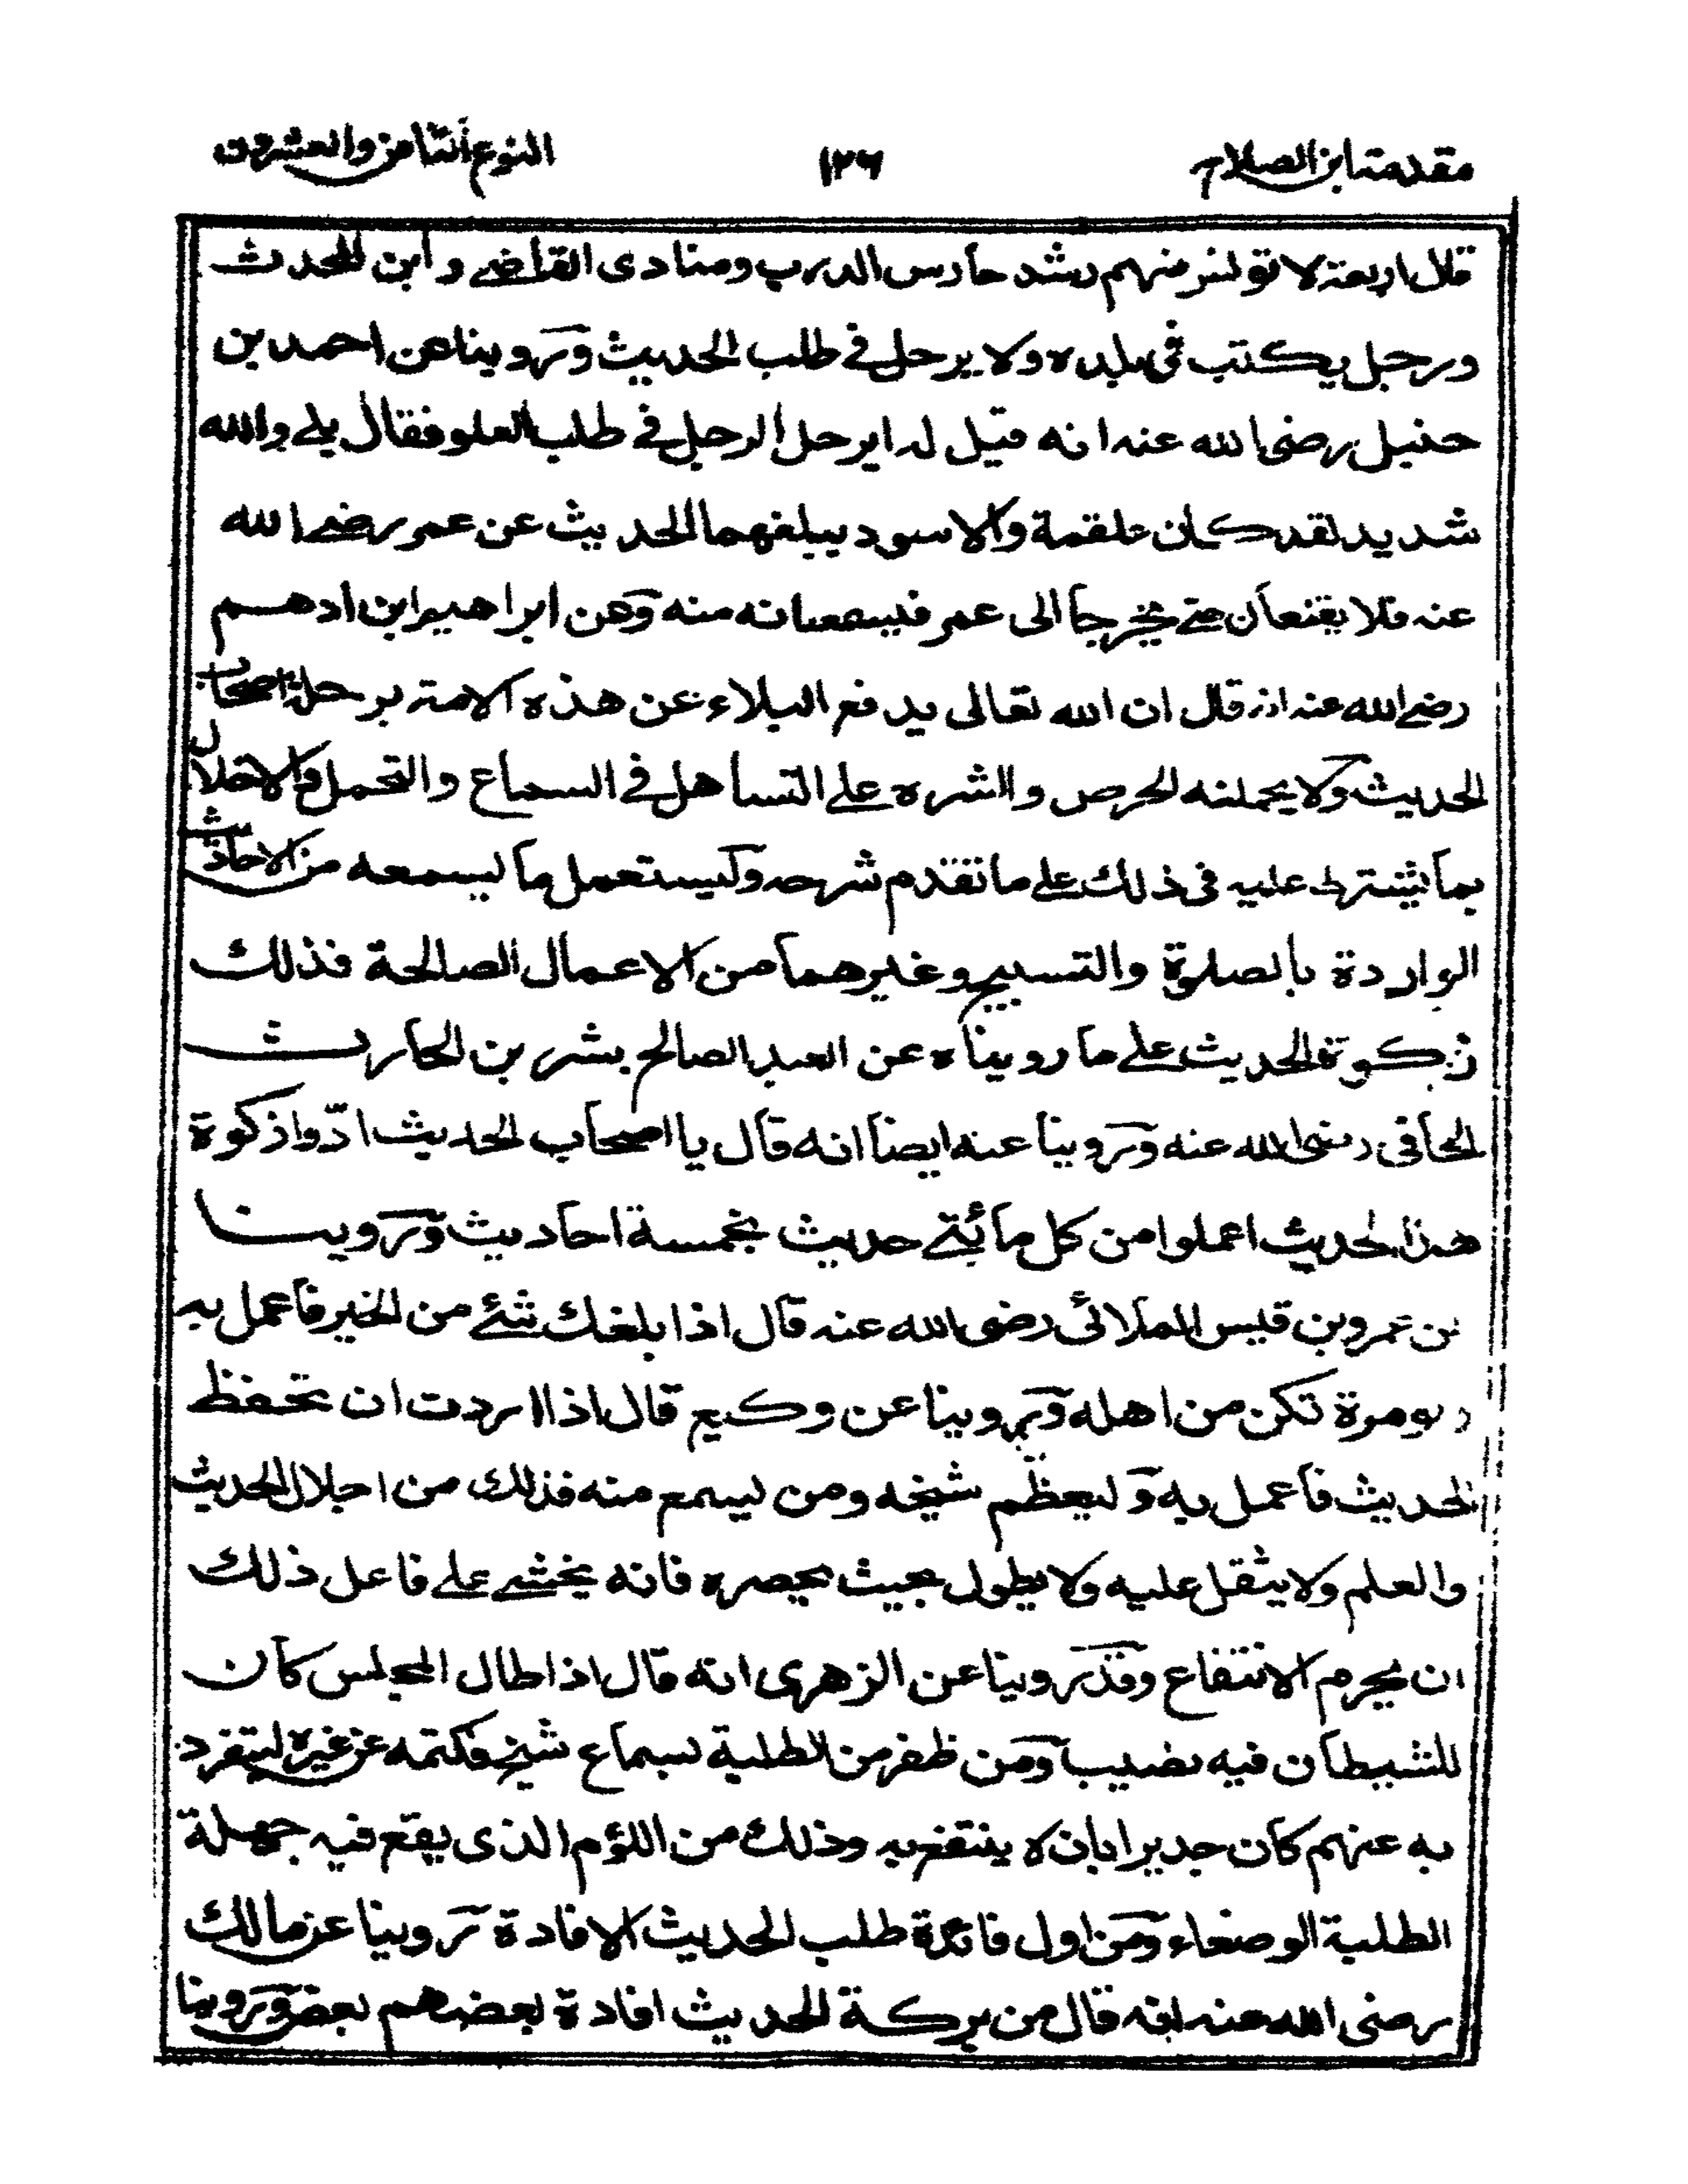 مقدمة ابن الصلاح ١٢٦ النوع الثامن والعشرون
قال اربعة لا تونس منهم رشد حارس الدرب ومنادى القاضى وابن المحدث
ورجل يكتب فى بلده ولا يرحل فى طلب الحديث وروينا عن احمد بن
حنبل رضى الله عنه انه قيل له ايرحل الرجل فى طلب العلو فقال بلى والله
شديد لقد كان علقمة والاسود يبلغهما الحديث عن عمر رضى الله
عنه فلا يقنعان حتى يخرجا الى عمر فيسمعانه منه وعن ابراهيم ابن ادهم
رضى الله عنه انه قال ان الله تعالى يدفع البلاء عن هذه الامة برحلة اصحاب
الحديث ولا يحملنه الحرص والشره على التساهل فى السماع والتحمل والاخلال
بما يشترط عليه فى ذلك على ما تقدم شرحه وليستعمل ما يسمعه من الاحاديث
الواردة بالصلوة والتسبيح وغيرهما من الاعمال الصالحة فذلك
زكوة الحديث على ما رويناه عن العبد الصالح بشر بن الحارث
الحافى رضى الله عنه وروينا عنه ايضا انه قال يا اصحاب الحديث ادّوا زكوة
هذا الحديث اعملوا من كل مائتى حديث بخمسة احاديث وروينا
عن عمرو بن قيس الملائى رضى الله عنه قال اذا بلغك شئ من الخير فاعمل به
ولو مرة تكن من اهله وروينا عن وكيع قال اذا اردت ان تحفظ
الحديث فاعمل به وليعظم شيخه ومن يسمع منه فذلك من اجلال الحديث
والعلم ولا يثقل عليه ولا يطول بحيث يضجره فانه يخشى على فاعل ذلك
ان يحرم الانتفاع وقد روينا عن الزهرى انه قال اذا طال المجلس كان
للشيطان فيه نصيب ومن ظفر من الطلبة بسماع شيخ فكتمه عن غيره لينفرد
به عنهم كان جديرا بان لا ينتفع به وذلك من اللؤم الذى يقع فيه جهلة
الطلبة الوضعاء ومن اول فائدة طلب الحديث الافادة روينا عن مالك
رضى الله عنه انه قال من بركة الحديث افادة بعضهم بعض وروينا